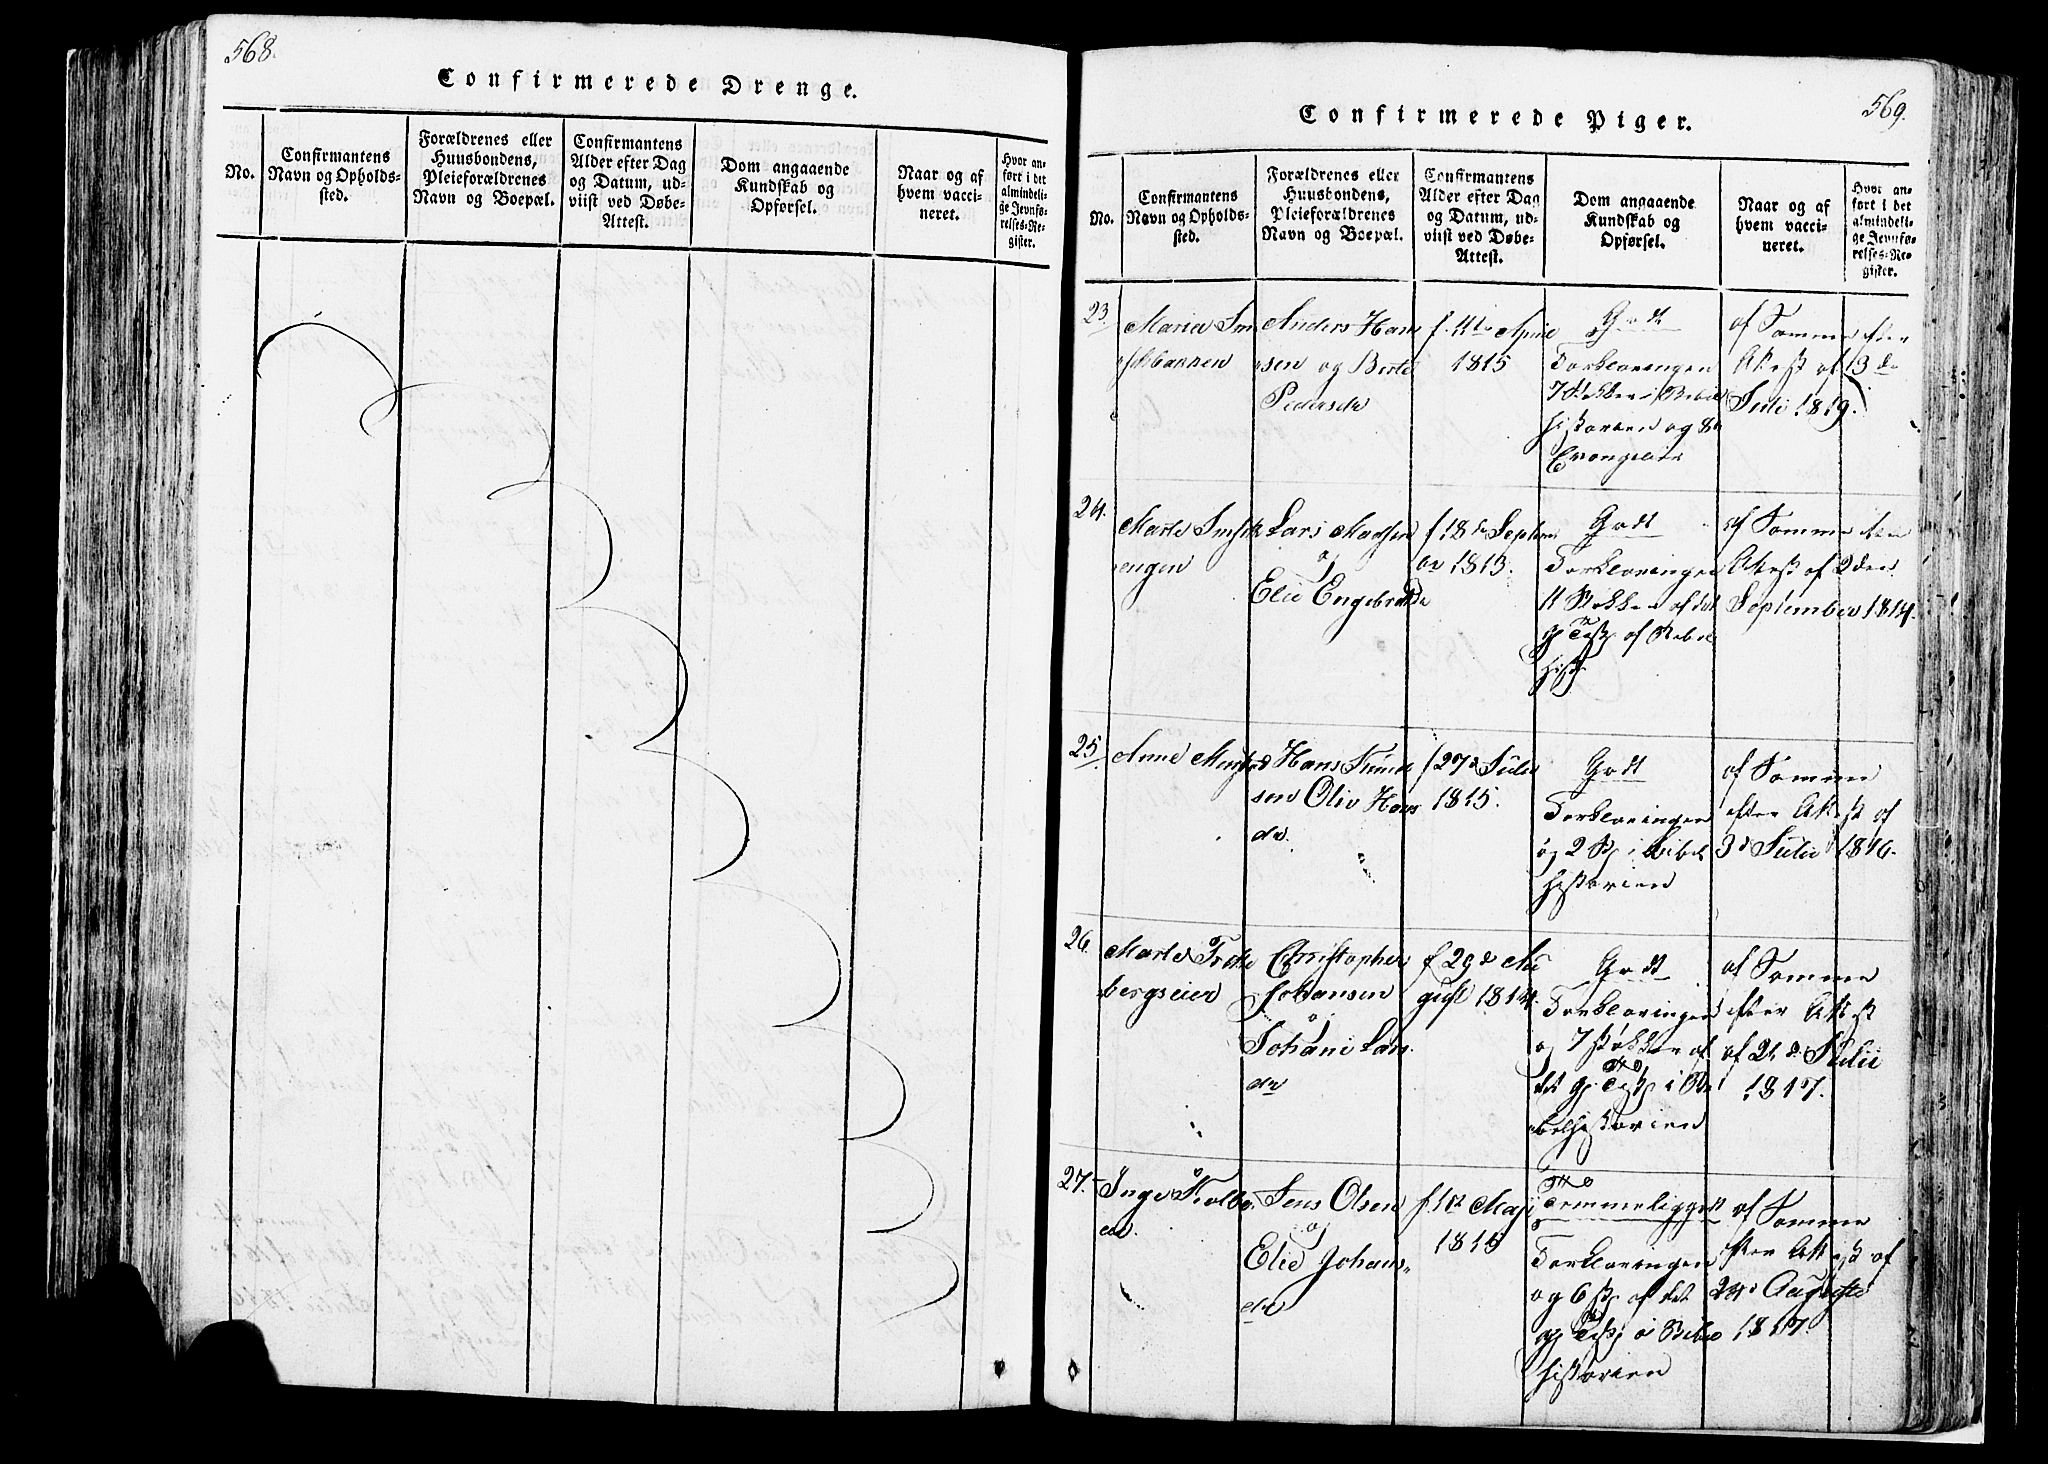 568.
Confirmerede Drenge.
No.
Confirmantens
Navn og Opholds-
sted.
Forældrenes eller
Huusbondens,
Pleieforældrenes
Navn og Boepæl.
Confirmantens
Alder efter Dag
og Datum, ud-
viist ved Døbe-
Attest.
Dom angaaende
Kundskab og
Opførsel.
Naar og af
hvem vacci-
neret.
Hvor an-
ført i det
almindeli-
ge Jevnfø-
relses-Re-
gister.
569.
Confirmerede Piger.
No.
Confirmantens
Navn og Opholds-
sted.
Forældrenes eller
Huusbondens,
Pleieforældrenes
Navn og Boepæl.
Confirmantens
Alder efter Dag
og Datum, ud-
viist ved Døbe-
Attest.
Dom angaaende
Kundskab og
Opførsel.
Naar og af
hvem vacci-
neret.
Hvor an-
ført i det
almindeli-
ge Jevnfø-
relses-Re-
gister.
23
Maria
Anders Han
sen og Berte
Pedersdr
f. 11te April
1815
Godt
Forklaringen
7 Stökker i Bibel
historien og
Evangelier
af Samme efter
Attest af 13de
Juli 1819.
24.
Marte
engen
Lars Madsen
og
Elie Engebretsdr
f 18de Septem
br 1813.
Godt
Forklaringen
11 Stökker af det
gl Test af Bibel
hist
af Samme efter
Attest af 2den
September 1814.
25
Anne
Hans
sen Oliv Hans
dr.
f 27de Julii
1815.
Godt
Forklaringen
og 2 St i bibel
historien
af Samme
efter Attest af
3de Julii 1816.
26
Marte
bergseier
Christopher
Johansen
og
Johane Lars
dr
f 29de Au
gust 1814.
Godt
Forklaringen
og 7 stökker af
det gl Test i Bi
belhistorien
af Samme
efter Attest
af 24de Julii
1817.
27.
Inge
Jens Olsen
og
Elie Johans-
dr
f. 1ste Maji
1815
Temmeliggodt
Forklaringen
og 6 st af det
gl Test i Bibel
historien
af Samme
efter Attest af
Augusti
1817.